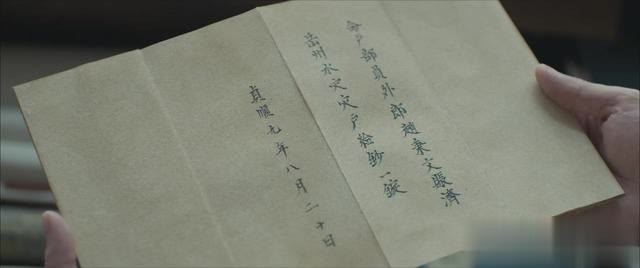 命户部員外郎趙秉文賑濟
岳州水灾灾户给鈔一錠
貞順九年八月二十日